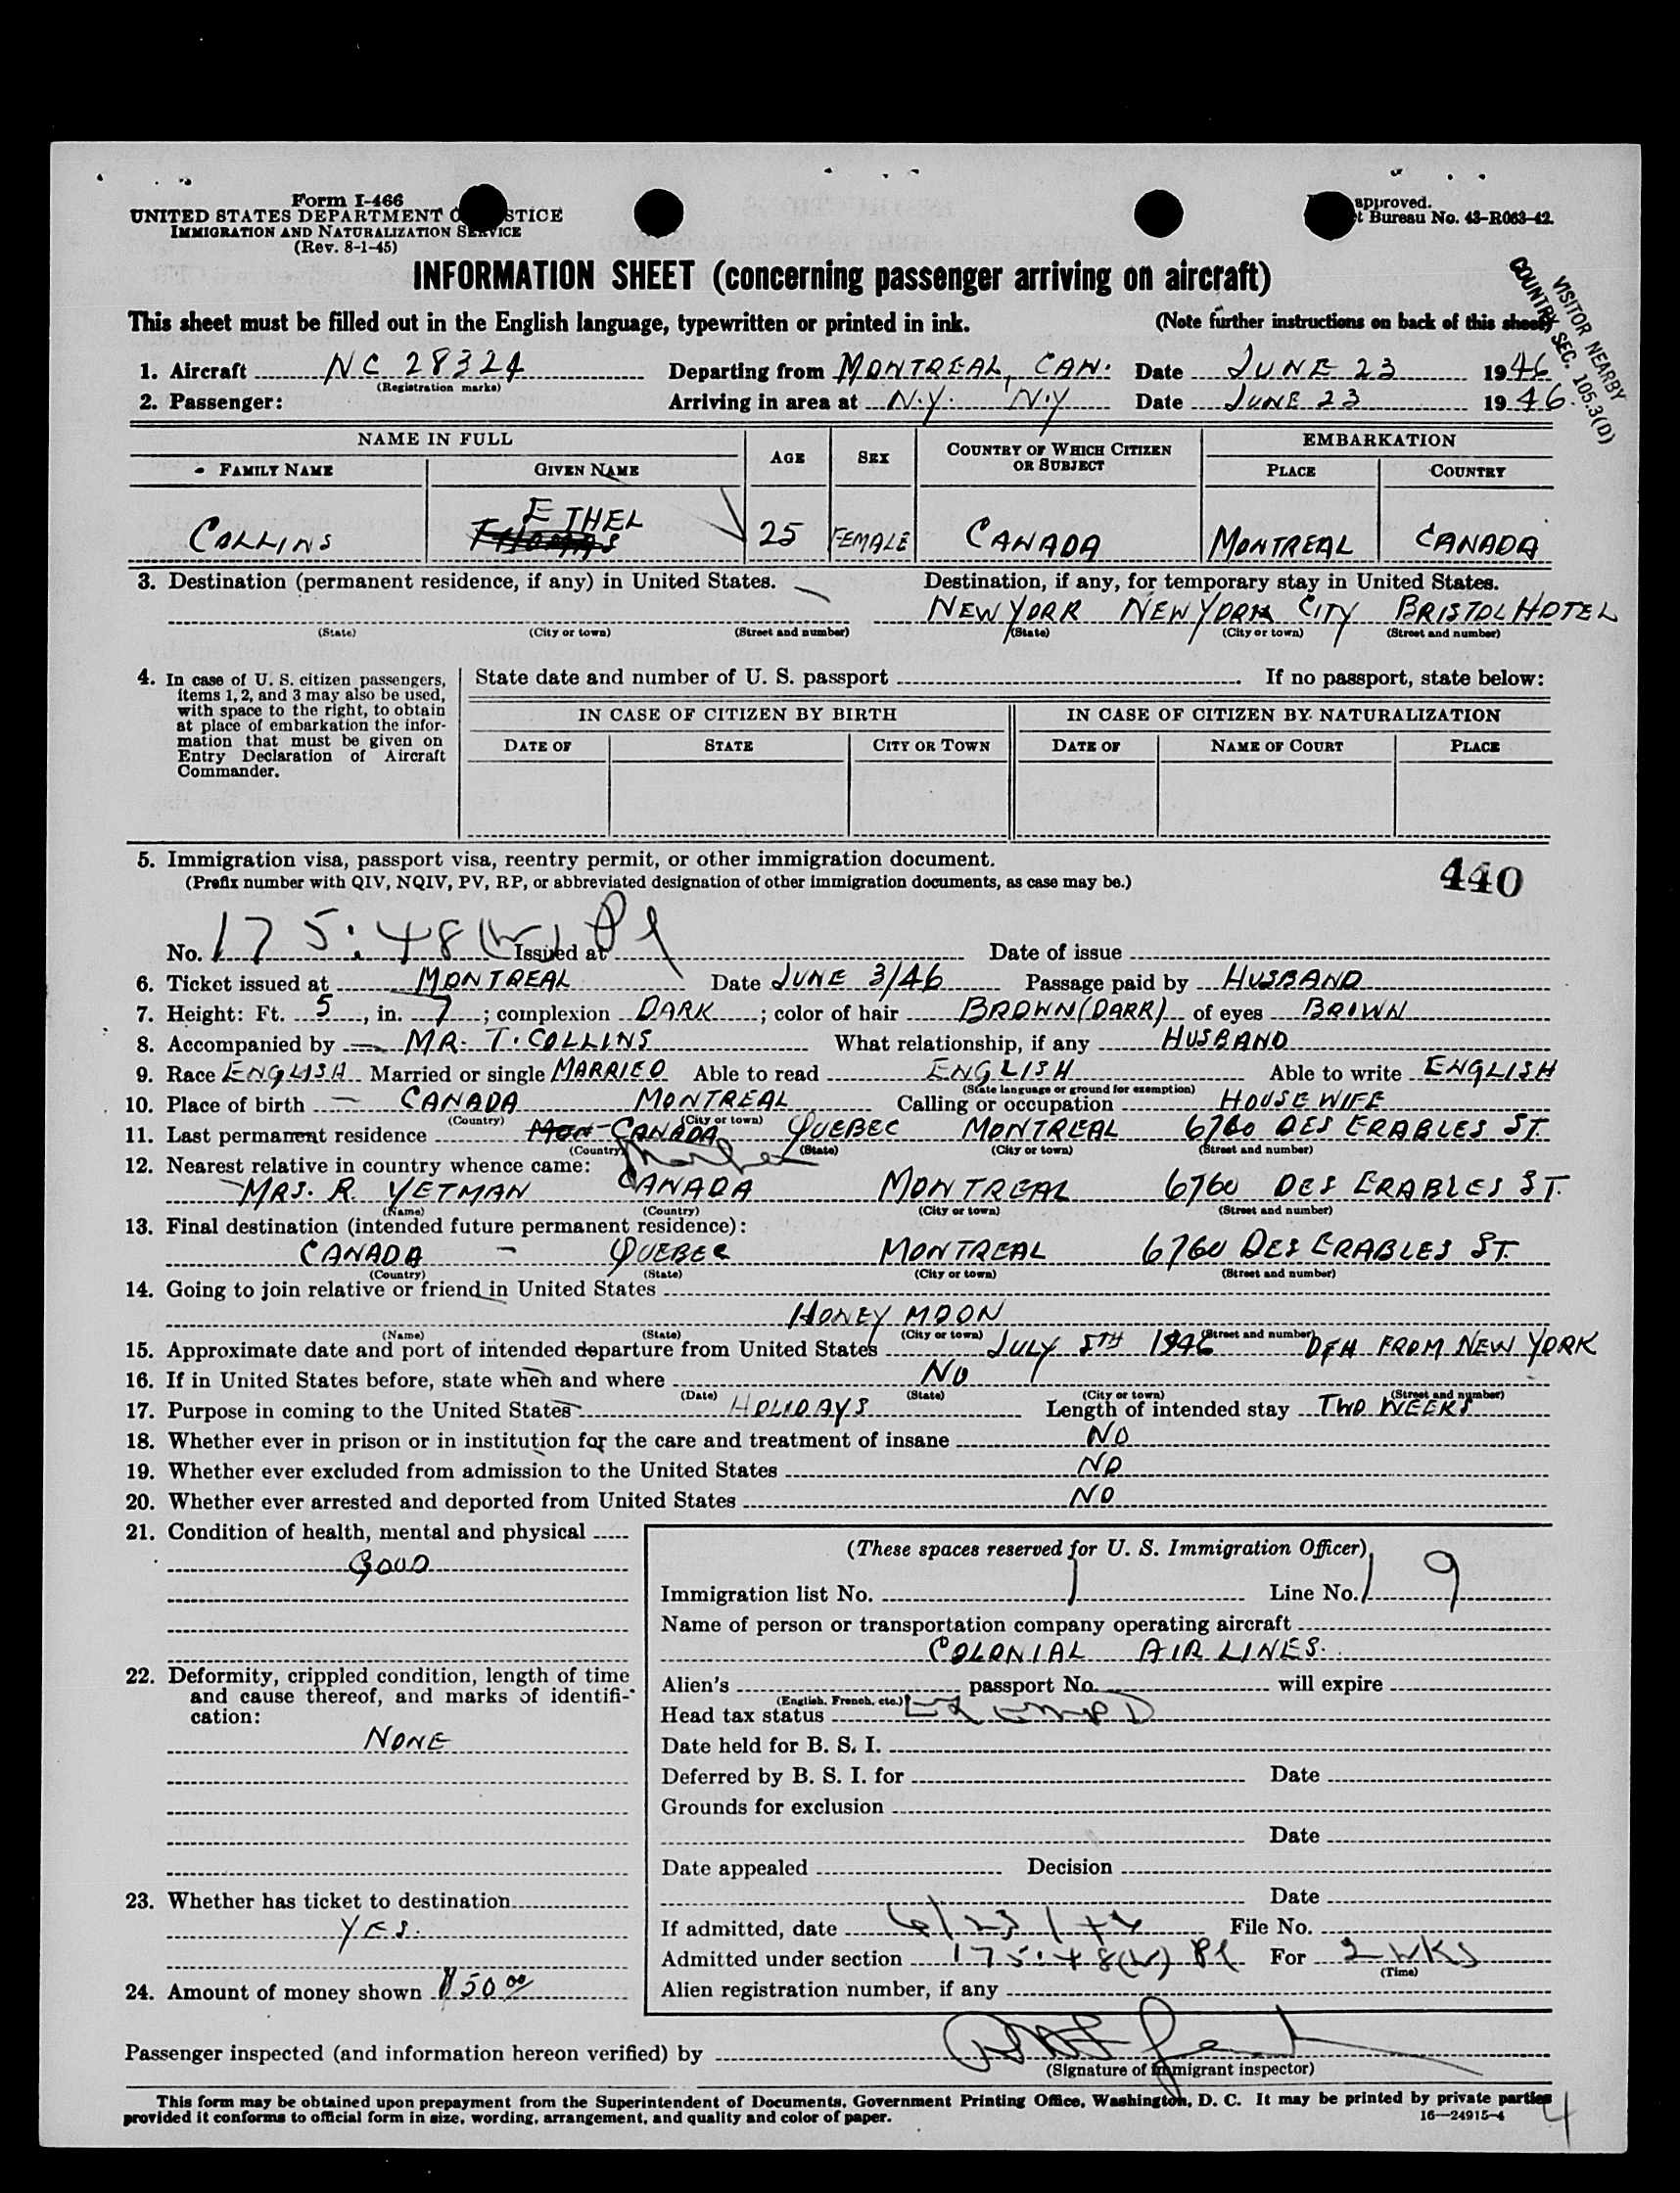 Form I-466
UNITED STATES DEPARTMENT O STICE
IMMIGRATION AND NATURALIZATION SERVICE
(Rev. 8-1-45)
approved.
t Bureau No. 43-R063-42.
INFORMATION SHEET (concerning passenger arriving on aircraft)
VISITOR NEARBY
COUNTRY SEC. 105.3(D)
This sheet must be filled out in the English language, typewritten or printed in ink. (Note further instructions on back of this sheet)
1. Aircraft NC 28324 Departing from MONTREAL, CAN. Date JUNE 23 1946
(Registration marks)
2. Passenger: Arriving in area at N.Y. N.Y Date JUNE 23 1946.
NAME IN FULL AGE SEX COUNTRY OF WHICH CITIZEN OR SUBJECT EMBARKATION
FAMILY NAME GIVEN NAME PLACE COUNTRY
ETHEL
COLLINS THOMAS 25 FEMALE CANADA MONTREAL CANADA
3. Destination (permanent residence, if any) in United States. Destination, if any, for temporary stay in United States.
NEW YORK NEW YORK CITY BRISTOL HOTEL
(State) (City or town) (Street and number) (State) (City or town) (Street and number)
4. In case of U. S. citizen passengers, items 1, 2, and 3 may also be used, with space to the right, to obtain at place of embarkation the information that must be given on Entry Declaration of Aircraft Commander.
State date and number of U. S. passport If no passport, state below:
IN CASE OF CITIZEN BY BIRTH IN CASE OF CITIZEN BY NATURALIZATION
DATE OF STATE CITY OR TOWN DATE OF NAME OF COURT PLACE
5. Immigration visa, passport visa, reentry permit, or other immigration document.
(Prefix number with QIV, NQIV, PV, RP, or abbreviated designation of other immigration documents, as case may be.)
440
No. 175:48(b) P1 Issued at Date of issue
6. Ticket issued at MONTREAL Date JUNE 3/46 Passage paid by HUSBAND
7. Height: Ft. 5, in. 7; complexion DARK; color of hair BROWN (DARK) of eyes BROWN
8. Accompanied by MR. T. COLLINS What relationship, if any HUSBAND
9. Race ENGLISH Married or single MARRIED Able to read ENGLISH Able to write ENGLISH
(State language or ground for exemption)
10. Place of birth CANADA MONTREAL Calling or occupation HOUSE WIFE
(Country) (City or town)
11. Last permanent residence MON- CANADA QUEBEC MONTREAL 6760 DES ERABLES ST.
(Country) (State) (City or town) (Street and number)
12. Nearest relative in country whence came: Mother
MRS. R. YETMAN CANADA MONTREAL 6760 DES ERABLES ST.
(Name) (Country) (City or town) (Street and number)
13. Final destination (intended future permanent residence):
CANADA - QUEBEC MONTREAL 6760 DES ERABLES ST.
(Country) (State) (City or town) (Street and number)
14. Going to join relative or friend in United States
HONEY MOON
(Name) (State) (City or town) (Street and number)
15. Approximate date and port of intended departure from United States JULY 5TH 1946 FROM NEW YORK
16. If in United States before, state when and where NO
(Date) (State) (City or town) (Street and number)
17. Purpose in coming to the United States HOLIDAYS Length of intended stay TWO WEEKS
18. Whether ever in prison or in institution for the care and treatment of insane NO
19. Whether ever excluded from admission to the United States NO
20. Whether ever arrested and deported from United States NO
21. Condition of health, mental and physical
GOOD
22. Deformity, crippled condition, length of time
and cause thereof, and marks of identifi-
cation:
NONE
23. Whether has ticket to destination
YES.
24. Amount of money shown $50.00
(These spaces reserved for U. S. Immigration Officer)
Immigration list No. 1 Line No. 9
Name of person or transportation company operating aircraft
COLONIAL AIR LINES.
Alien's passport No. will expire
(English, French, etc.)
Head tax status Exempt
Date held for B. S. I.
Deferred by B. S. I. for Date
Grounds for exclusion
Date
Date appealed Decision
Date
If admitted, date 6/23/46 File No.
Admitted under section 175:48(b) P1 For 2 WKS
(Time)
Alien registration number, if any
Passenger inspected (and information hereon verified) by
(Signature of immigrant inspector)
This form may be obtained upon prepayment from the Superintendent of Documents, Government Printing Office, Washington, D. C. It may be printed by private parties
provided it conforms to official form in size, wording, arrangement, and quality and color of paper. 16—24915-4
4